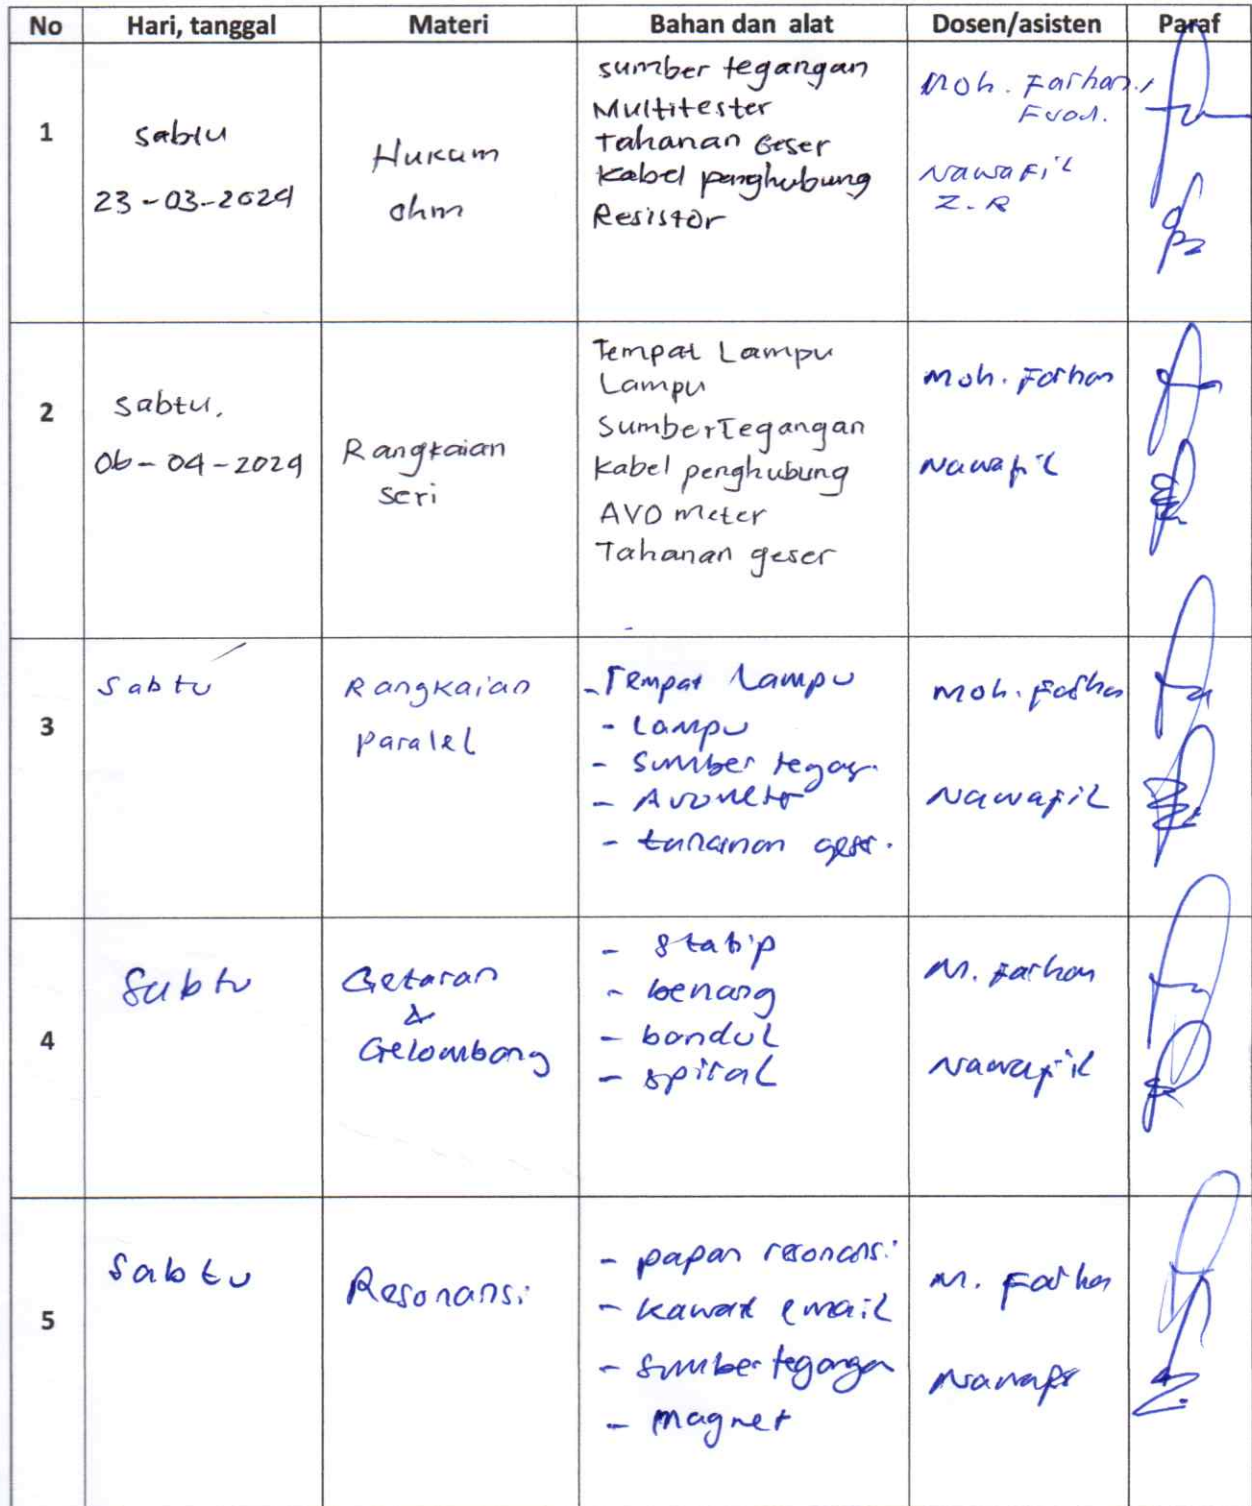 No Hari, tanggal Materi Bahan dan alat Dosen/asisten Paraf
1
sabtu
23-03-2024
Hukum
ohm
sumber tegangan
Multitester
Tahanan Geser
Kabel penghubung
Resistor
Moh. Farhan.,
Nawafil
Z.R
2
sabtu,
06-04-2024
Rangkaian
seri
Tempat Lampu
Lampu
Sumber Tegangan
kabel penghubung
AVO meter
Tahanan geser
Moh. Farhan
Nawafil
3
Sabtu
Rangkaian
paralel
- Tempat Lampu
- Lampu
- Sumber tegag.
- Avometer
- tahanan geser.
Moh. Farhan
Nawafil
4
Sabtu
Getaran
&
Gelombang
- statip
- benang
- bandul
- spiral
M. Farhan
Nawafil
5
Sabtu
Resonansi
- papan resonansi
- kawat email
- Sumber tegangan
- Magnet
M. Farhan